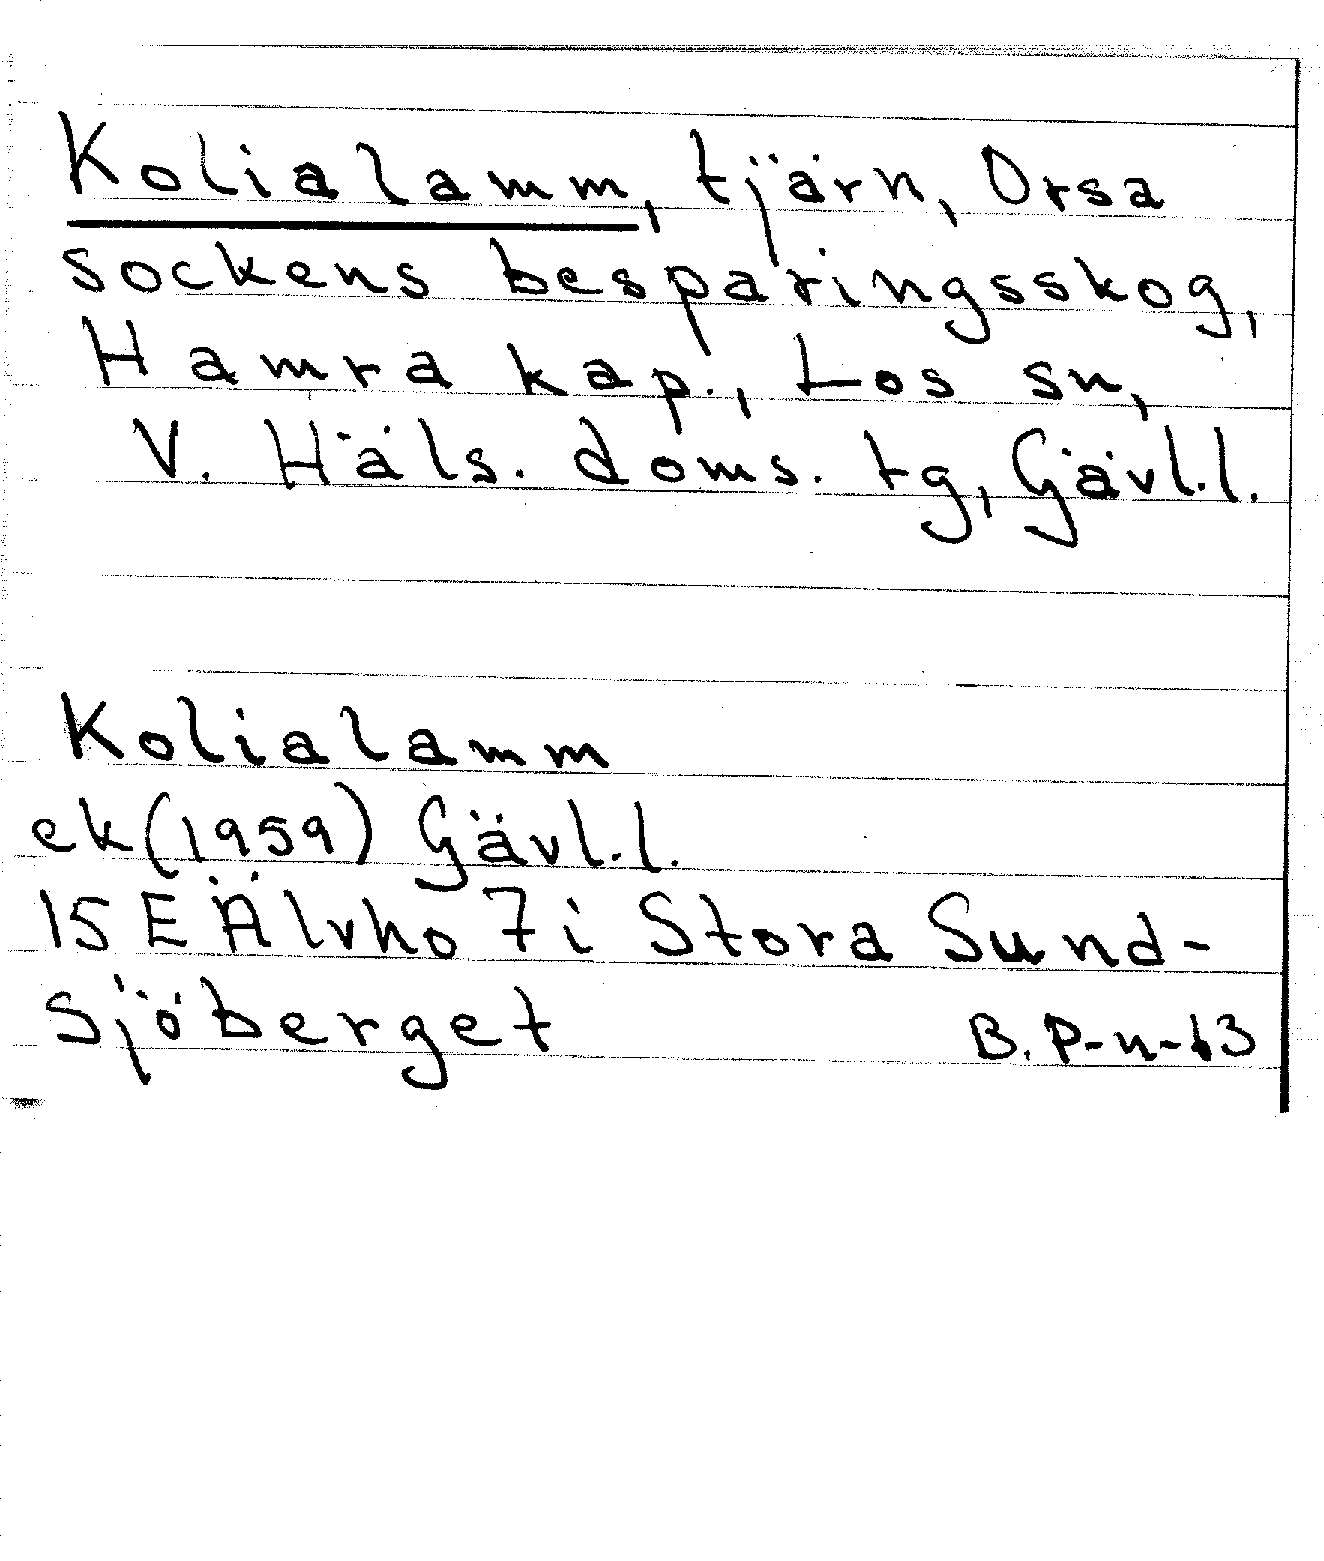 Kolialamm, tjärn, Orsa
sockens besparingsskog,
Hamra kap., Los sn,
V. Häls. doms. tg, Gävl.l.
Kolialamm
ek(1959) Gävl.l.
15 E Älvho 7i Stora Sund-
sjöberget B. P-n-63